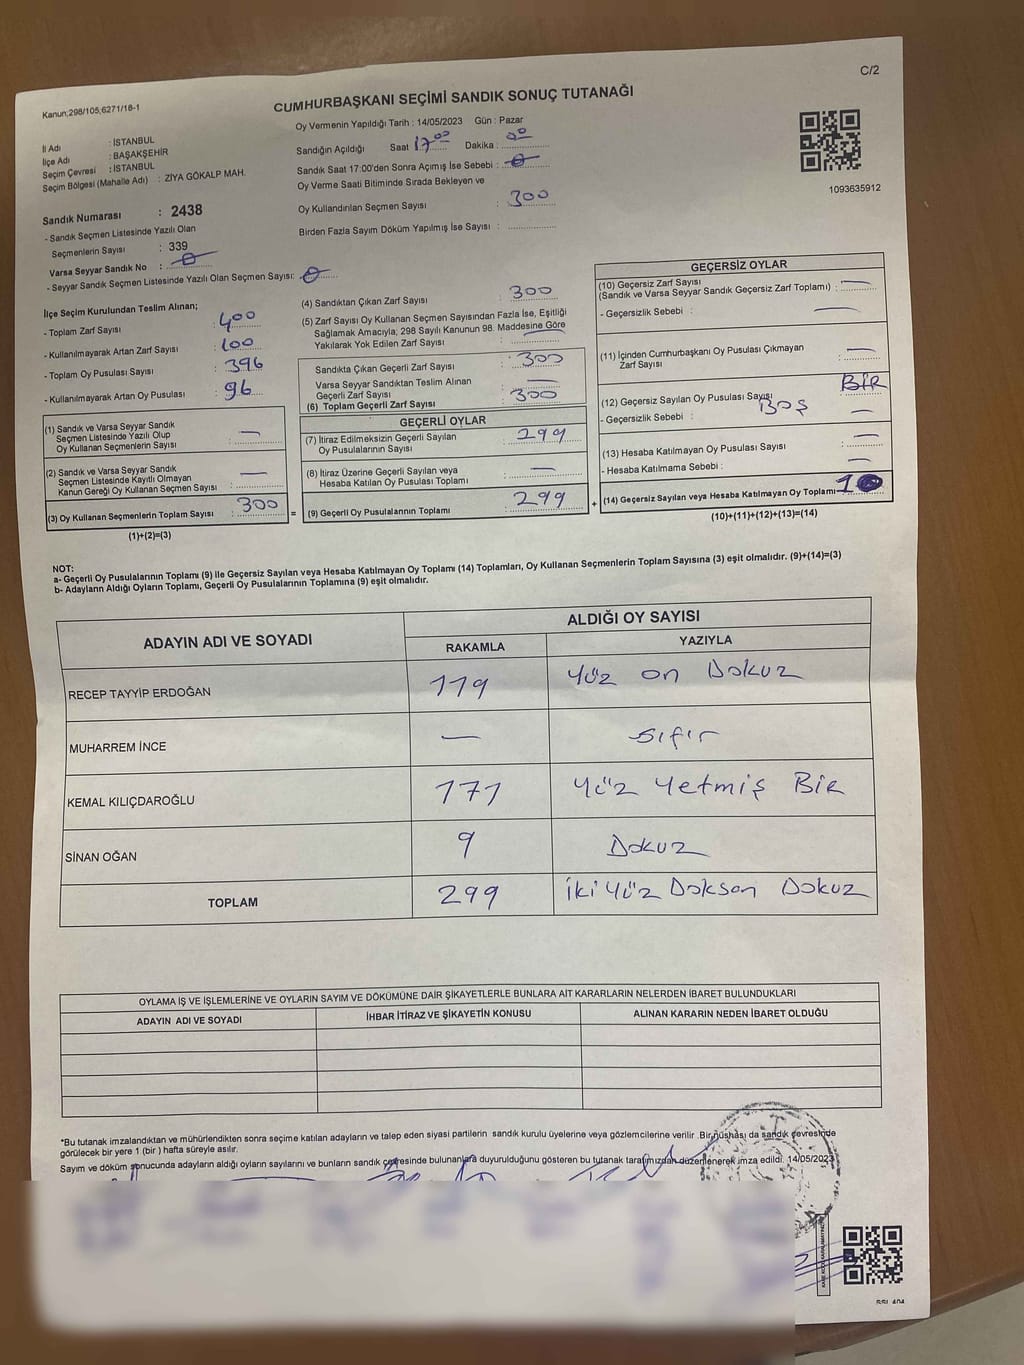 C/2
Kanun;298/105;6271/18-1
CUMHURBAŞKANI SEÇİMİ SANDIK SONUÇ TUTANAĞI
Oy Vermenin Yapıldığı Tarih : 14/05/2023 Gün : Pazar
İl Adı : İSTANBUL
İlçe Adı : BAŞAKŞEHİR
Seçim Çevresi : İSTANBUL
Seçim Bölgesi (Mahalle Adı) : ZİYA GÖKALP MAH.
Sandığın Açıldığı Saat 17⁰⁰ Dakika : 00
Sandık Saat 17:00'den Sonra Açımış İse Sebebi : 0
Oy Verme Saati Bitiminde Sırada Bekleyen ve
Oy Kullandırılan Seçmen Sayısı : 300
Birden Fazla Sayım Döküm Yapılmış İse Sayısı :
1093635912
Sandık Numarası : 2438
- Sandık Seçmen Listesinde Yazılı Olan
Seçmenlerin Sayısı : 339
Varsa Seyyar Sandık No : 0
- Seyyar Sandık Seçmen Listesinde Yazılı Olan Seçmen Sayısı: 0
İlçe Seçim Kurulundan Teslim Alınan;
- Toplam Zarf Sayısı : 400
- Kullanılmayarak Artan Zarf Sayısı : 100
- Toplam Oy Pusulası Sayısı : 396
- Kullanılmayarak Artan Oy Pusulası : 96
(1) Sandık ve Varsa Seyyar Sandık
Seçmen Listesinde Yazılı Olup
Oy Kullanan Seçmenlerin Sayısı : —
(2) Sandık ve Varsa Seyyar Sandık
Seçmen Listesinde Kayıtlı Olmayan
Kanun Gereği Oy Kullanan Seçmen Sayısı : —
(3) Oy Kullanan Seçmenlerin Toplam Sayısı : 300
(1)+(2)=(3)
=
(4) Sandıktan Çıkan Zarf Sayısı : 300
(5) Zarf Sayısı Oy Kullanan Seçmen Sayısından Fazla İse, Eşitliği
Sağlamak Amacıyla; 298 Sayılı Kanunun 98. Maddesine Göre
Yakılarak Yok Edilen Zarf Sayısı : —
Sandıkta Çıkan Geçerli Zarf Sayısı : 300
Varsa Seyyar Sandıktan Teslim Alınan
Geçerli Zarf Sayısı : —
(6) Toplam Geçerli Zarf Sayısı : 300
GEÇERLİ OYLAR
(7) İtiraz Edilmeksizin Geçerli Sayılan
Oy Pusulalarının Sayısı : 299
(8) İtiraz Üzerine Geçerli Sayılan veya
Hesaba Katılan Oy Pusulası Toplamı : —
(9) Geçerli Oy Pusulalarının Toplamı : 299
+
GEÇERSİZ OYLAR
(10) Geçersiz Zarf Sayısı
(Sandık ve Varsa Seyyar Sandık Geçersiz Zarf Toplamı) : —
- Geçersizlik Sebebi : —
(11) İçinden Cumhurbaşkanı Oy Pusulası Çıkmayan
Zarf Sayısı : —
(12) Geçersiz Sayılan Oy Pusulası Sayısı : BİR
- Geçersizlik Sebebi : BOŞ —
(13) Hesaba Katılmayan Oy Pusulası Sayısı : —
- Hesaba Katılmama Sebebi : —
(14) Geçersiz Sayılan veya Hesaba Katılmayan Oy Toplamı: 1
(10)+(11)+(12)+(13)=(14)
NOT:
a- Geçerli Oy Pusulalarının Toplamı (9) ile Geçersiz Sayılan veya Hesaba Katılmayan Oy Toplamı (14) Toplamları, Oy Kullanan Seçmenlerin Toplam Sayısına (3) eşit olmalıdır. (9)+(14)=(3)
b- Adayların Aldığı Oyların Toplamı, Geçerli Oy Pusulalarının Toplamına (9) eşit olmalıdır.
ADAYIN ADI VE SOYADI
ALDIĞI OY SAYISI
RAKAMLA YAZIYLA
RECEP TAYYİP ERDOĞAN 119 Yüz on Dokuz
MUHARREM İNCE — Sıfır
KEMAL KILIÇDAROĞLU 171 Yüz Yetmiş Bir
SİNAN OĞAN 9 Dokuz
TOPLAM 299 İki Yüz Doksan Dokuz
OYLAMA İŞ VE İŞLEMLERİNE VE OYLARIN SAYIM VE DÖKÜMÜNE DAİR ŞİKAYETLERLE BUNLARA AİT KARARLARIN NELERDEN İBARET BULUNDUKLARI
ADAYIN ADI VE SOYADI İHBAR İTİRAZ VE ŞİKAYETİN KONUSU ALINAN KARARIN NEDEN İBARET OLDUĞU
*Bu tutanak imzalandıktan ve mühürlendikten sonra seçime katılan adayların ve talep eden siyasi partilerin sandık kurulu üyelerine veya gözlemcilerine verilir .Bir nüshası da sandık çevresinde
görülecek bir yere 1 (bir ) hafta süreyle asılır.
Sayım ve döküm sonucunda adayların aldığı oyların sayılarını ve bunların sandık çevresinde bulunanlara duyurulduğunu gösteren bu tutanak tarafımızdan düzenlenerek imza edildi. 14/05/2023